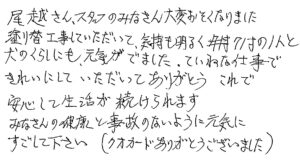 尾越さん、スタッフのみなさん大変おそくなりました
塗り替え工事していただいて、気持も明るく 1人と
犬のくらしにも、元気がでました。ていねいな仕事で
きれいにして いただいてありがとう これで
安心して生活が続けられます
みなさんの健康と事故のないように元気に
すごして下さい (クオカードありがとうございました)